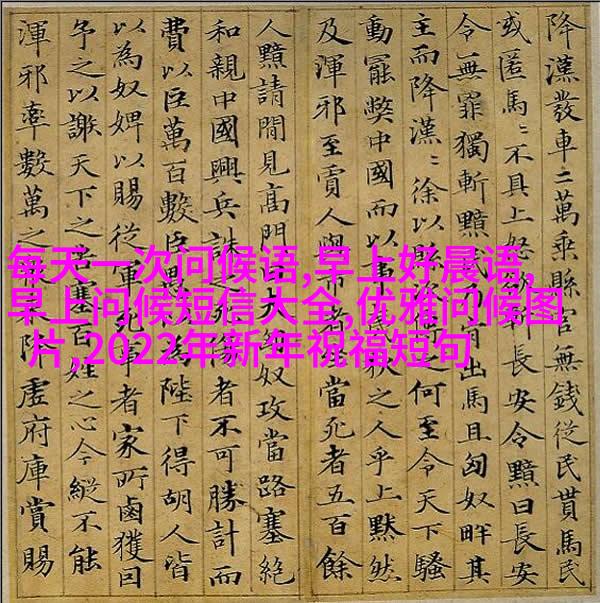 每天一次问候语,早上好晨语,
早上问候短信大全,优雅问候图
片,2022年新年祝福短句
降漢發車二萬乘縣官無錢從民貰馬民
或匿馬〻不具上怒欲斬長安令黯曰長安
令無罪獨斬黯出馬且匈奴畔其
主而降漢〻徐以縣何至令天下騷
動罷弊中國而以事之人乎上默然
及渾邪至賈人與市者當死者五百餘
人黯請閒見高門曰奴攻當路塞絕
和親中國興兵誅者不可勝計而
費以巨萬百數臣為陛下得胡人皆
以為奴婢以賜從軍死事者家所鹵獲因
予之以謝天下之苦塞百姓之心今縱不能
渾邪率數萬之降虛府庫賞賜